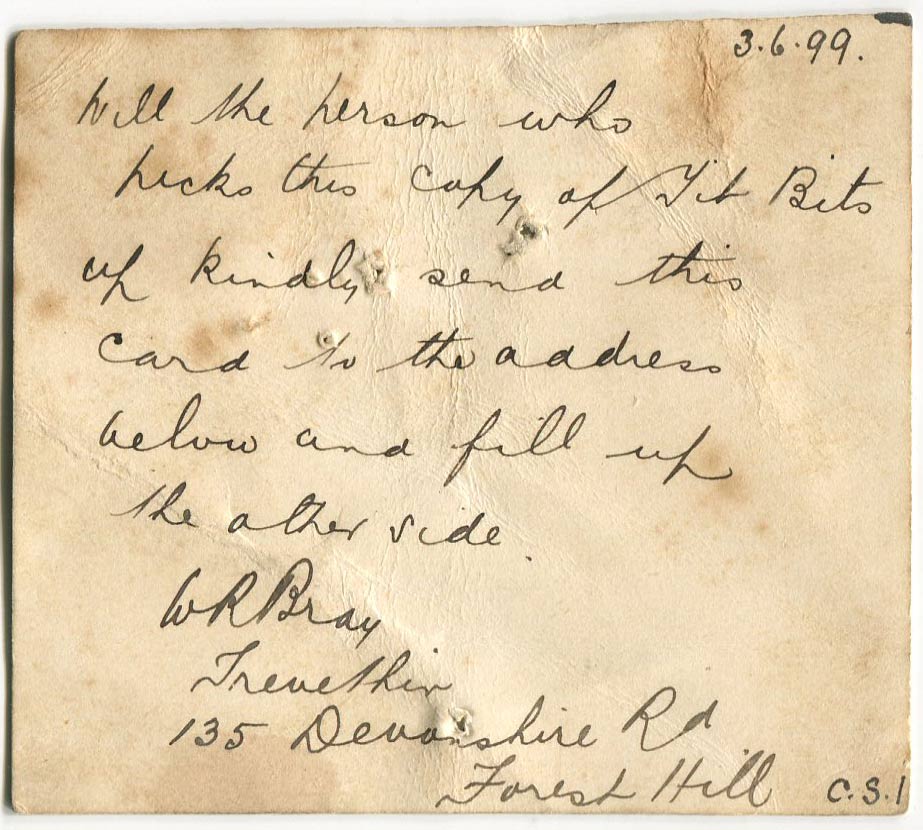 3.6.99.
Will the person who
picks this copy of Tit Bits
up kindly send this
card to the address
below and fill up
the other side.
WRBray
Trevethin
135 Devonshire Rd
Forest Hill
C.S.1